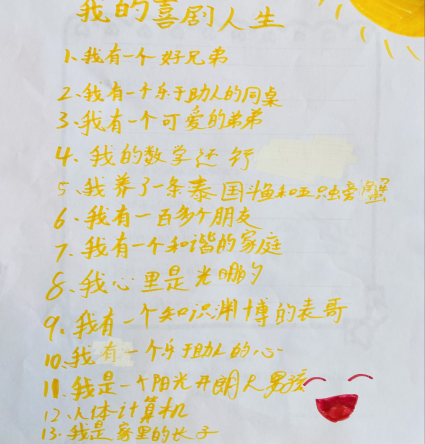 我的喜剧人生
1、我有一个好兄弟
2、我有一个乐于助人的同桌
3、我有一个可爱的弟弟
4、我的数学还行
5、我养了一条泰国斗鱼和五只螃蟹
6、我有一百多个朋友
7、我有一个和谐的家庭
8、我心里是光明的
9、我有一个知识渊博的表哥
10、我有一个乐于助人的心
11、我是一个阳光开朗大男孩
12、人体计算机
13、我是家里的长子